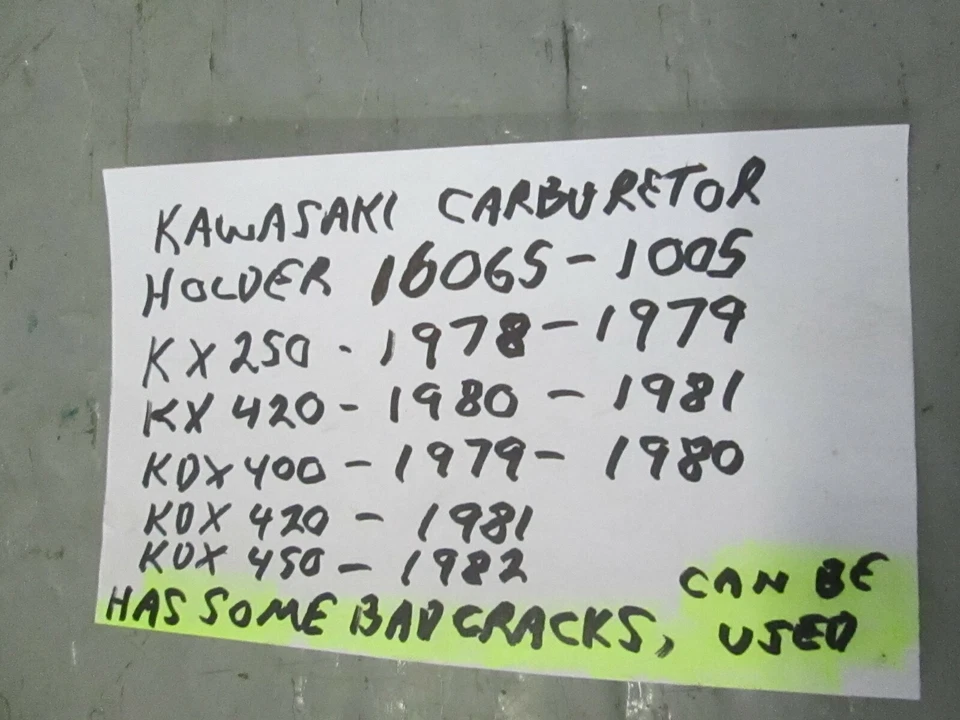 KAWASAKI CARBURETOR
HOLDER 16065-1005
KX250 - 1978-1979
KX 420 - 1980 - 1981
KDX 400 - 1979 - 1980
KDX 420 - 1981
KDX 450 - 1982
HAS SOME BAD CRACKS, CAN BE USED